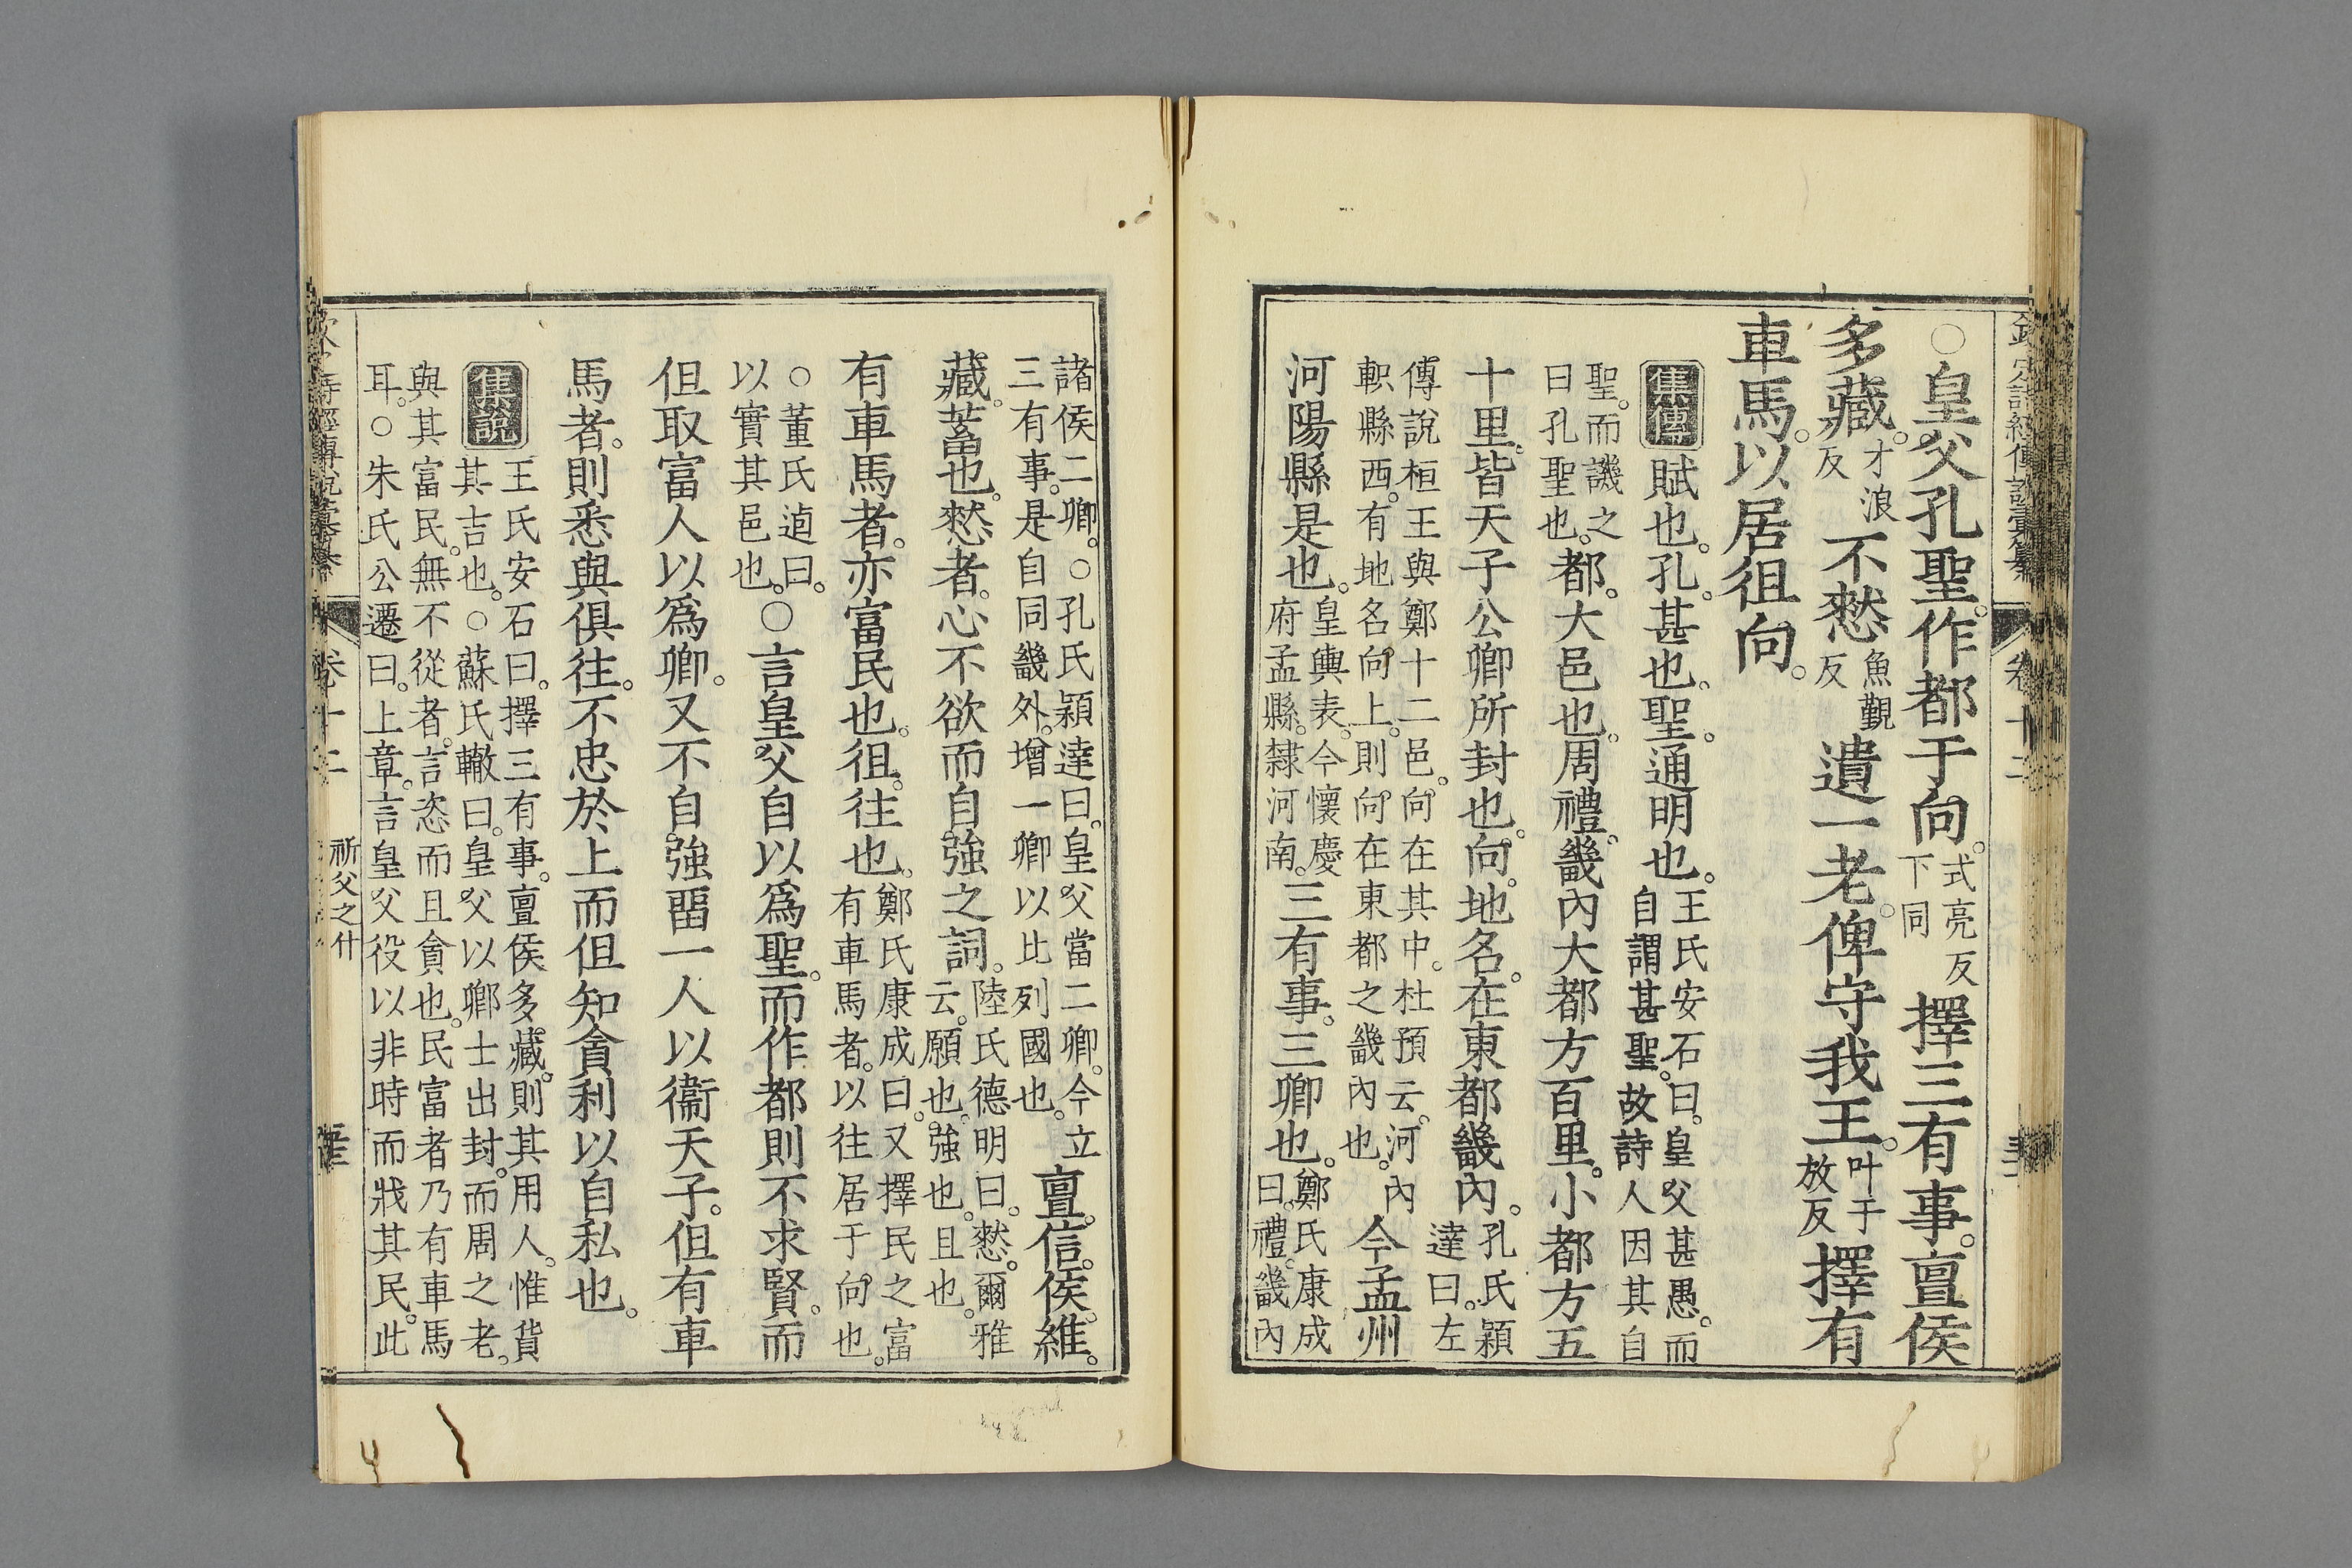 欽定詩經傳說彙纂 卷十二
○皇父孔聖。作都于向。式亮反下同擇三有事。亶侯
多藏。才浪反不憖魚覲反遺一老。俾守我王。叶于放反擇有
車馬。以居徂向。
集傳 賦也。孔。甚也。聖。通明也。王氏安石曰。皇父甚愚。而自謂甚聖。故詩人因其自
聖。而譏之曰孔聖也。都。大邑也。周禮。畿內大都方百里。小都方五
十里。皆天子公卿所封也。向。地名。在東都畿內。孔氏穎達曰。左
傳說桓王與鄭十二邑。向在其中。杜預云。河內軹縣西。有地名向上。則向在東都之畿內也。今孟州
河陽縣是也。皇輿表。今懷慶府孟縣。隸河南。三有事。三卿也。鄭氏康成曰。禮。畿內
諸侯二卿。○孔氏穎達曰。皇父當二卿。今立三有事。是自同畿外。增一卿以比列國也。亶。信。侯。維。
藏。蓄也。憖者。心不欲而自強之詞。陸氏德明曰。憖。爾雅云。願也。強也。且也。
有車馬者。亦富民也。徂。往也。鄭氏康成曰。又擇民之富有車馬者。以往居于向也。
○董氏逌曰。以實其邑也。○言皇父自以爲聖。而作都則不求賢。而
但取富人以爲卿。又不自強畱一人以衞天子。但有車
馬者。則悉與俱往。不忠於上而但知貪利以自私也。
集說 王氏安石曰。擇三有事。亶侯多藏。則其用人。惟貨其吉也。○蘇氏轍曰。皇父以鄉士出封。而周之老。
與其富民。無不從者。言恣而且貪也。民富者乃有車馬耳。○朱氏公遷曰。上章。言皇父役以非時而戕其民。此
詩經傳說彙纂 卷十二 祈父之什